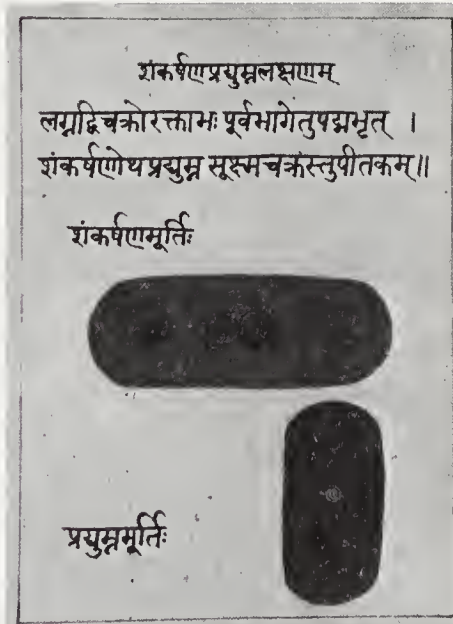 शंकर्षणप्रद्युम्नलक्षणम्
लग्नद्विचक्रोरक्ताभः पूर्वभागेतुपद्मभृत् ।
शंकर्षणोथप्रद्युम्न सूक्ष्मचक्रस्तुपीतकम्॥
शंकर्षणमूर्तिः
प्रद्युम्नमूर्तिः